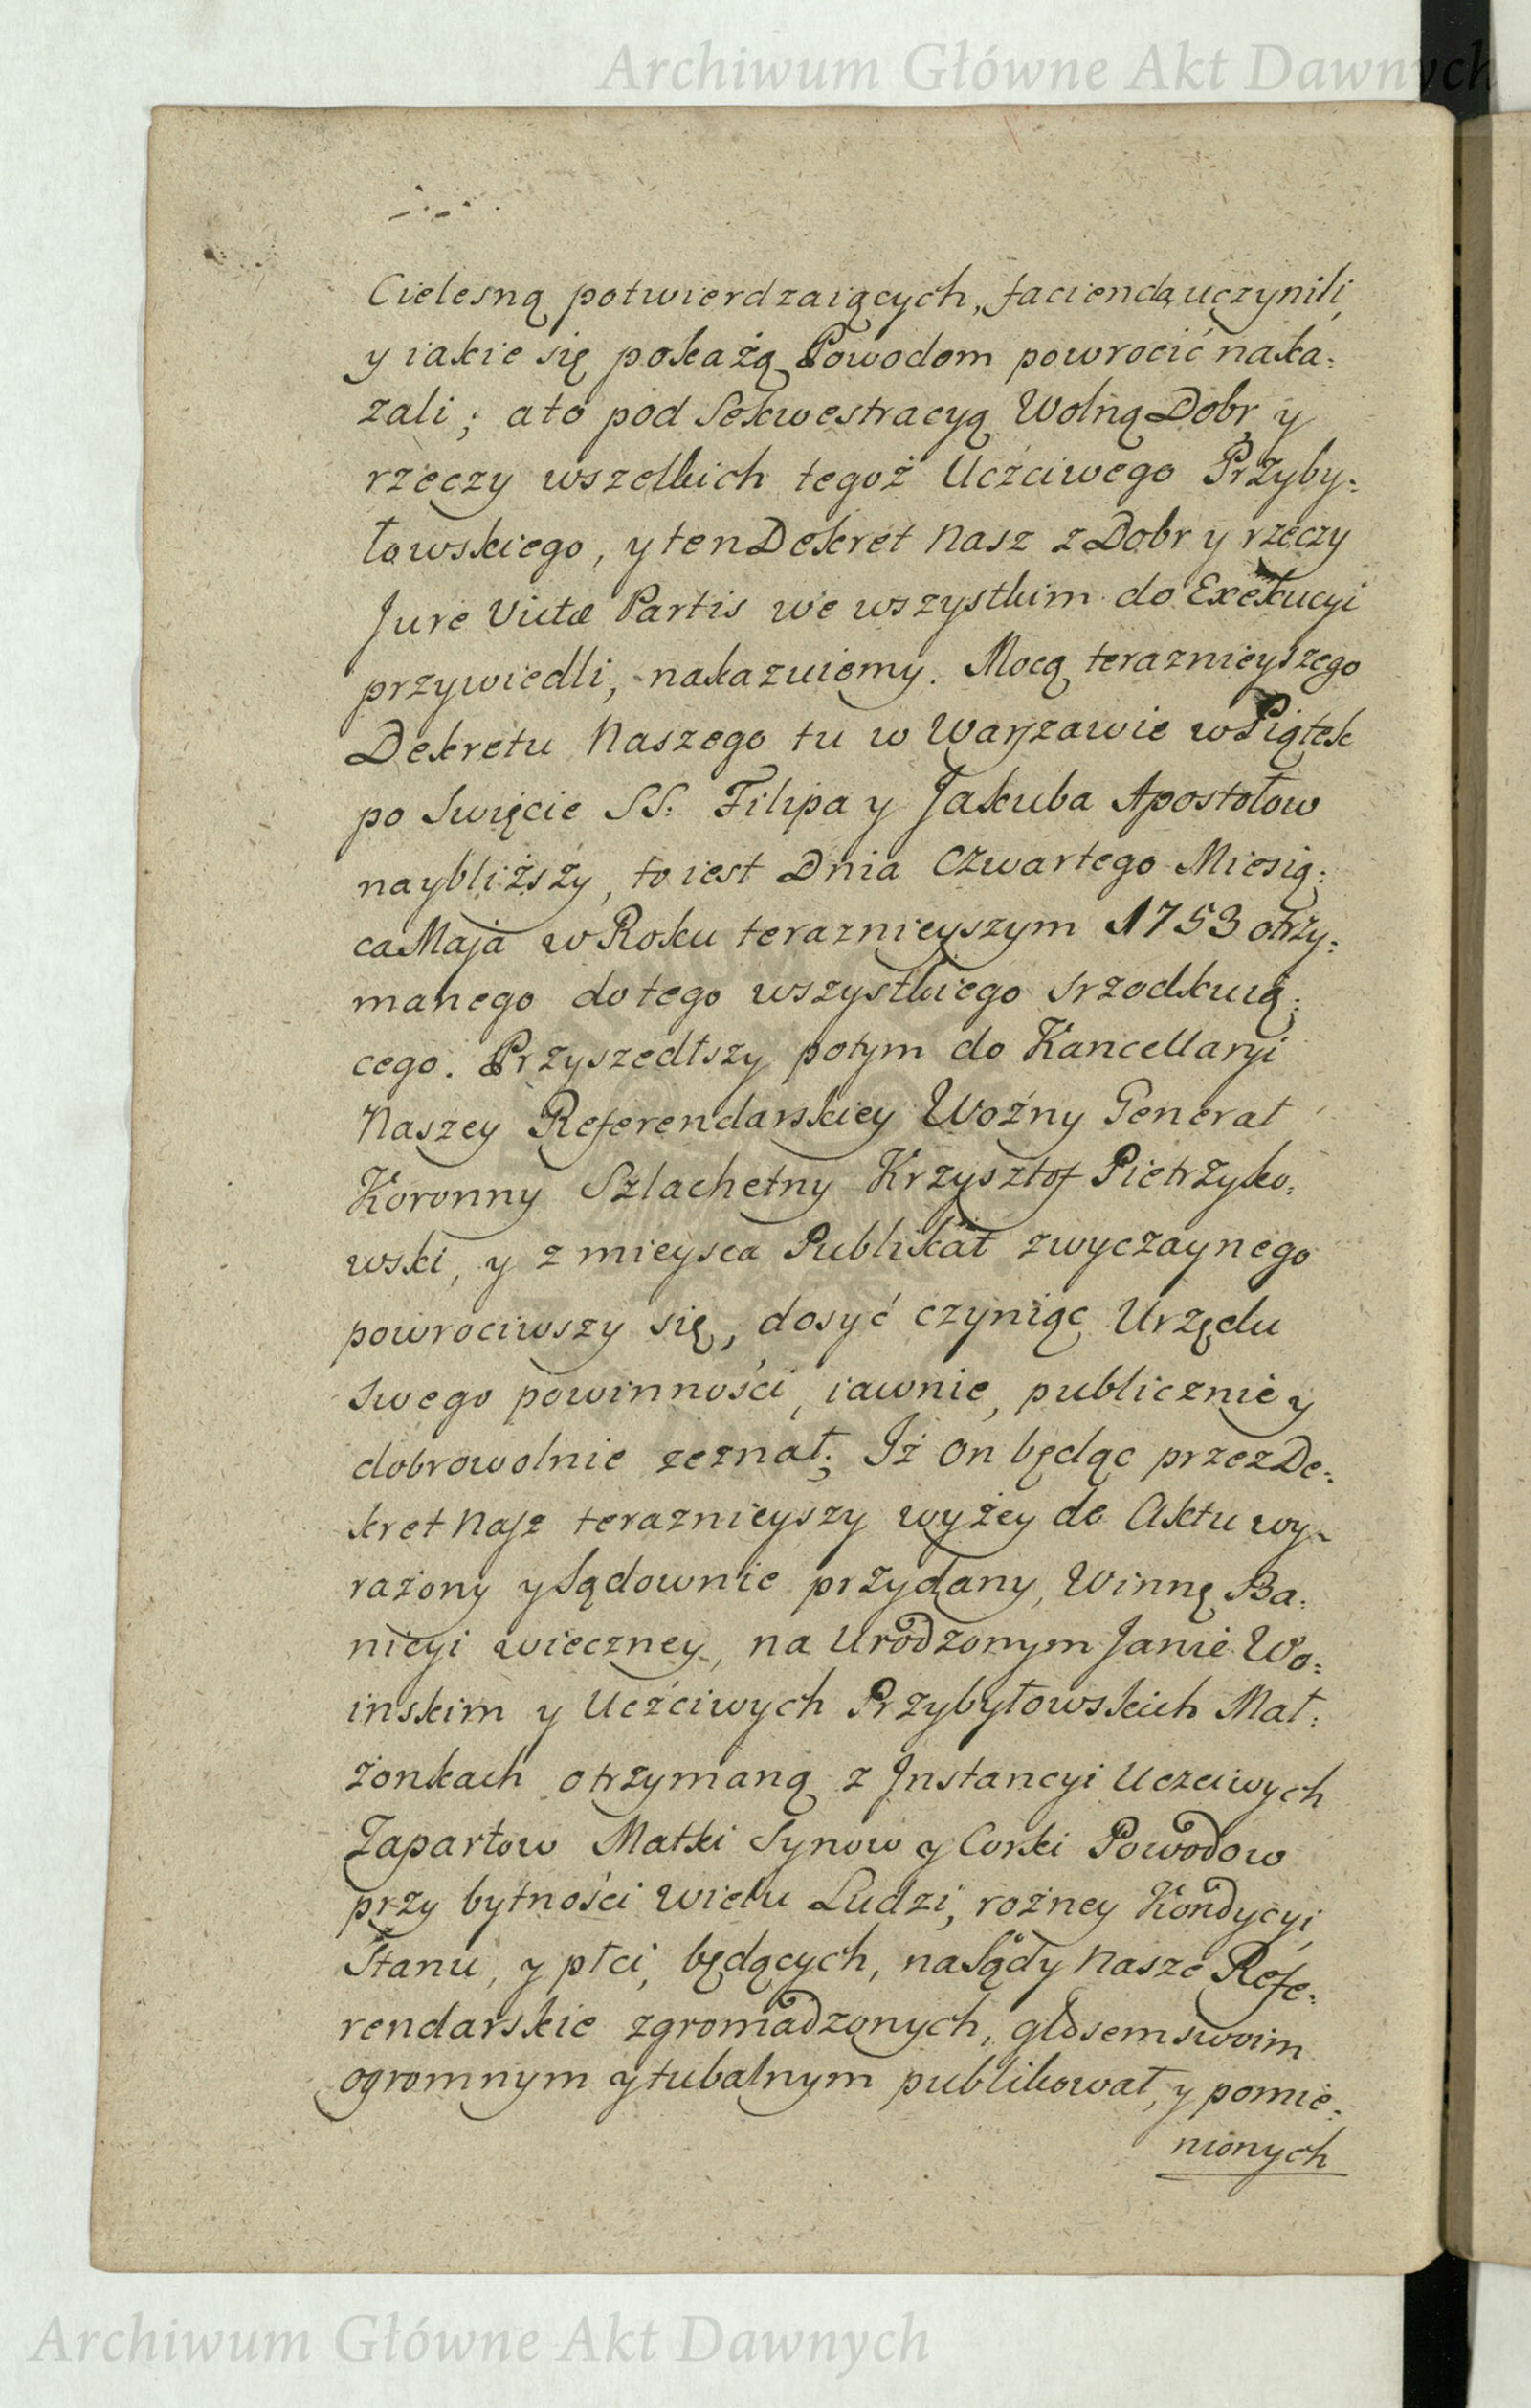 Archiwum Główne Akt Dawnych
Cielesną potwierdzaiących, facienda uczynili,
y iakie się pokażą Powodom powrocić naka:
zali; a to pod Sekwestracyą Wolną Dobr y
rzeczy wszelkich tegoż Uczciwego Przyby:
łowskiego, y ten Dekret Nasz z Dobr y rzeczy
Jure Victæ Partis we wszystkim do Exekucyi
przywiedli, nakazuiemy. Mocą teraznieyszego
Dekretu Naszego tu w Warszawie w Piątek
po Swięcie SS: Filipa y Jakuba Apostołow
naybliższy, to iest Dnia Czwartego Miesią:
ca Maja w Roku terażnieyszym 1753 otrzy:
manego do tego wszystkiego srzodkuią:
cego. Przyszedłszy potym do Kancellaryi
Naszey Referendarskiey Woźny Generał
Koronny Szlachetny Krzysztof Pietrzyko:
wski, y z mieysca Publikat zwyczaynego
powrociwszy się, dosyć czyniąc Urzędu
swego powinności, iawnie, publicznie y
dobrowolnie zeznał; Iż on będąc przez De:
kret Nasz teraznieyszy wyżey do Aktu wy-
rażony y Sądownie przydany, Winnę Ba:
nicyi wieczney, na Urodzonym Janie Wo:
inskim y Uczciwych Przybyłowskich Mał:
żonkach otrzymaną z Jnstancyi Uczciwych
Zapartow Matki Synow y Corki Powodow
przy bytności wielu Ludzi, rożney Kondycyi,
Stanu, y płci, będących, na Sądy Nasze Refe:
rendarskie zgromadzonych, głosem swoim
ogromnym y tubalnym publikował, y pomie:
nionych
Archiwum Główne Akt Dawnych